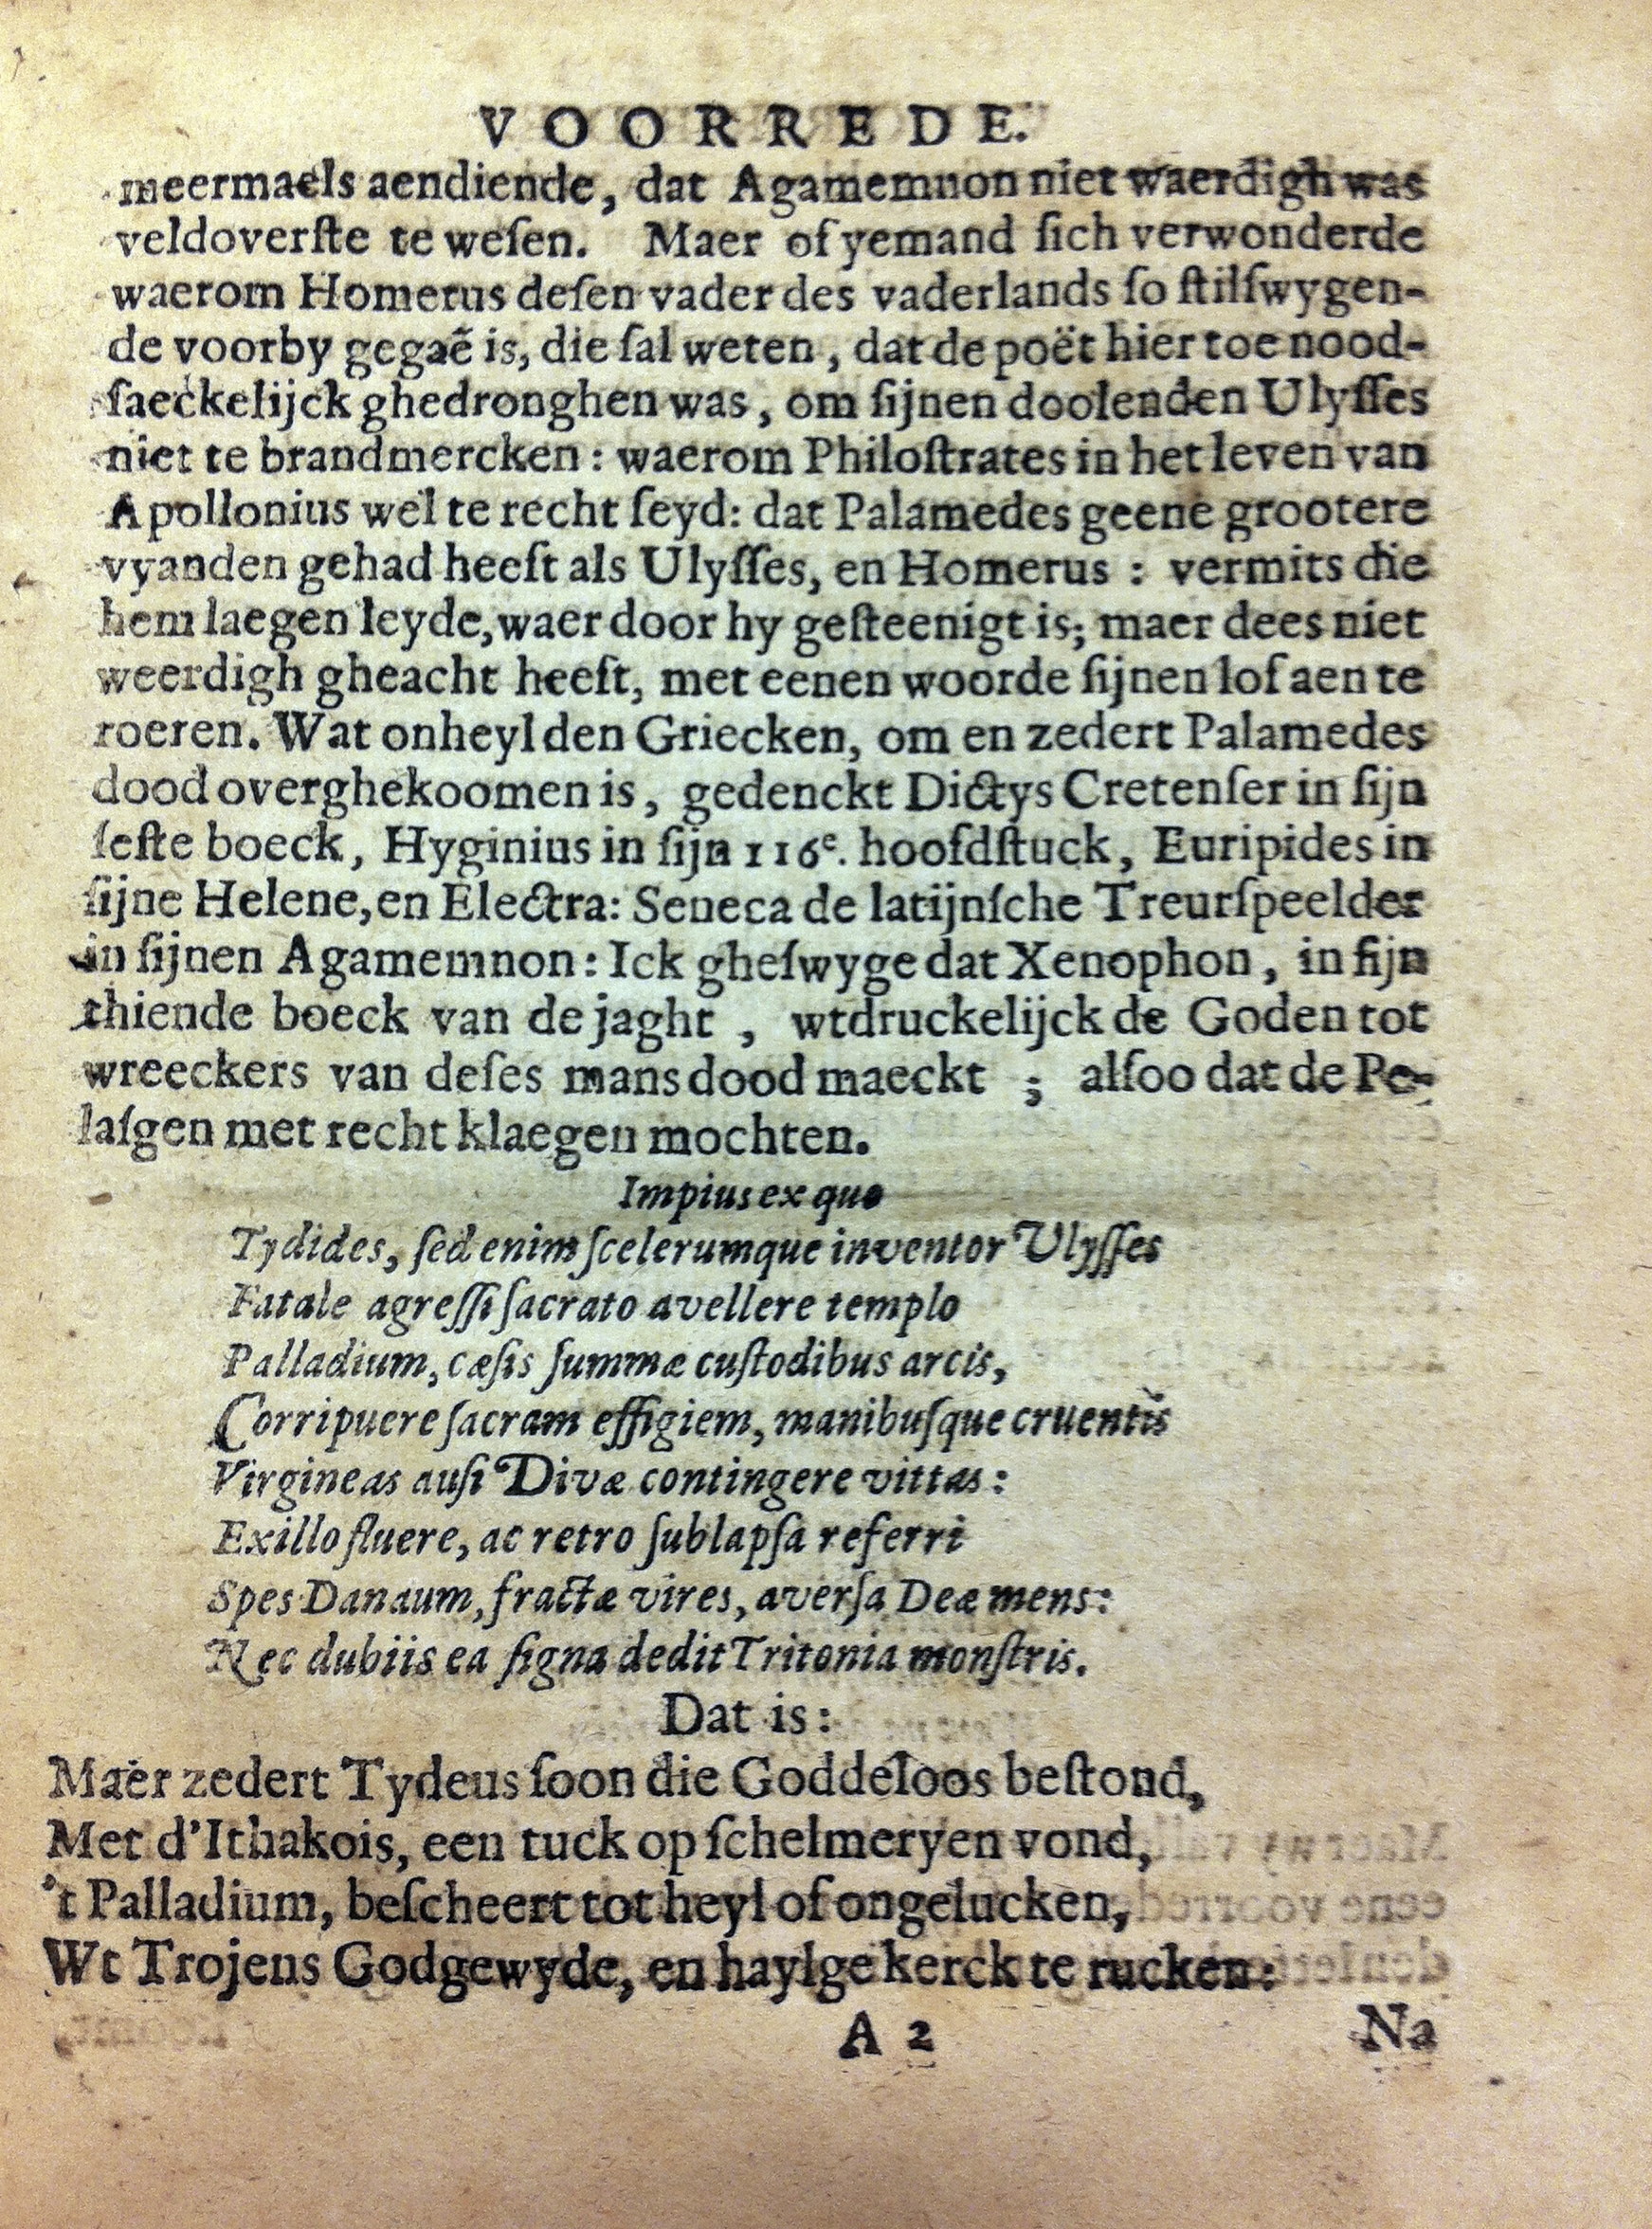 VOORREDE.
meermaels aendiende, dat Agamemnon niet waerdigh was
veldoverſte te weſen. Maer of yemand ſich verwonderde
waerom Homerus deſen vader des vaderlands ſo ſtilſwygen-
de voorby gegaẽ is, die ſal weten, dat de poët hier toe nood-
ſaeckelijck ghedronghen was, om ſijnen doolenden Ulyſſes
niet te brandmercken: waerom Philoſtrates in het leven van
Apollonius wel te recht ſeyd: dat Palamedes geene grootere
vyanden gehad heeft als Ulyſſes, en Homerus: vermits die
hem laegen leyde, waer door hy geſteenigt is; maer dees niet
weerdigh gheacht heeft, met eenen woorde ſijnen lof aen te
roeren. Wat onheyl den Griecken, om en zedert Palamedes
dood overghekoomen is, gedenckt Dictys Cretenſer in ſijn
ſeſte boeck, Hyginius in ſijn 116e. hoofdſtuck, Euripides in
ſijne Helene, en Electra: Seneca de latijnſche Treurſpeelder
in ſijnen Agamemnon: Ick gheſwyge dat Xenophon, in ſijn
thiende boeck van de jaght, wtdruckelijck de Goden tot
wreeckers van deſes mans dood maeckt; alſoo dat de Pe-
laſgen met recht klaegen mochten.
Impius ex quo
Tydides, ſed enim ſcelerumque inventor Ulyſſes
Fatale agreſſi ſacrato avellere templo
Palladium, cæſis ſummæ cuſtodibus arcis,
Corripuere ſacram effigiem, manibuſque cruentis
Virgineas auſi Divæ contingere vittas:
Ex illo fluere, ac retro ſublapſa referri
Spes Danaum, fractæ vires, averſa Deæ mens:
Nec dubiis ea ſigna dedit Tritonia monſtris.
Dat is:
Maer zedert Tydeus ſoon die Goddeloos beſtond,
Met d'Ithakois, een tuck op ſchelmeryen vond,
't Palladium, beſcheert tot heyl of ongelucken,
Wt Trojens Godgewyde, en haylge kerck te rucken:
A 2 Na